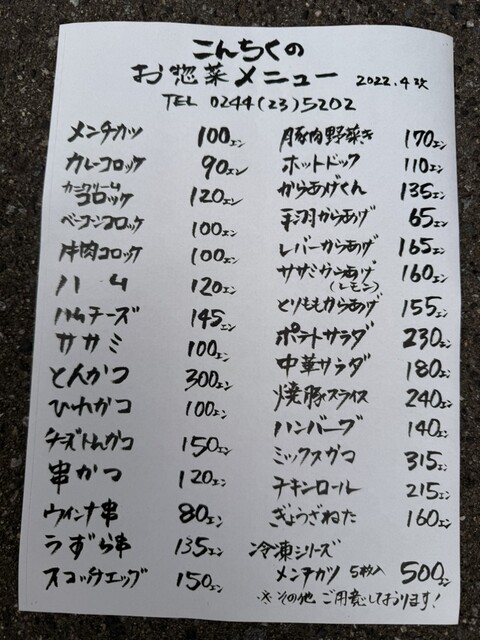 こんちくの
お惣菜メニュー 2022.4次
TEL 0244(23)5202
メンチカツ 100エン
カレーコロッケ 90エン
カニクリームコロッケ 120エン
ベーコンコロッケ 100エン
牛肉コロッケ 100エン
ハム 120エン
ハムチーズ 145エン
ササミ 100エン
とんかつ 300エン
ひれかつ 100エン
チーズトんかつ 150エン
串かつ 120エン
ウインナ串 80エン
うずら串 135エン
スコッチエッグ 150エン
豚肉野菜き 170エン
ホットドック 110エン
からあげくん 135エン
手羽からあげ 65エン
レバーからあげ 165エン
ササミからあげ 160エン
(レモン)
とりももからあげ 155エン
ポテトサラダ 230エン
中華サラダ 180エン
焼豚スライス 240エン
ハンバーグ 140エン
ミックスガコ 315エン
チキンロール 215エン
ぎょうざねた 160エン
冷凍シリーズ
メンチカツ 5枚入 500エン
※その他 ご用意しております!